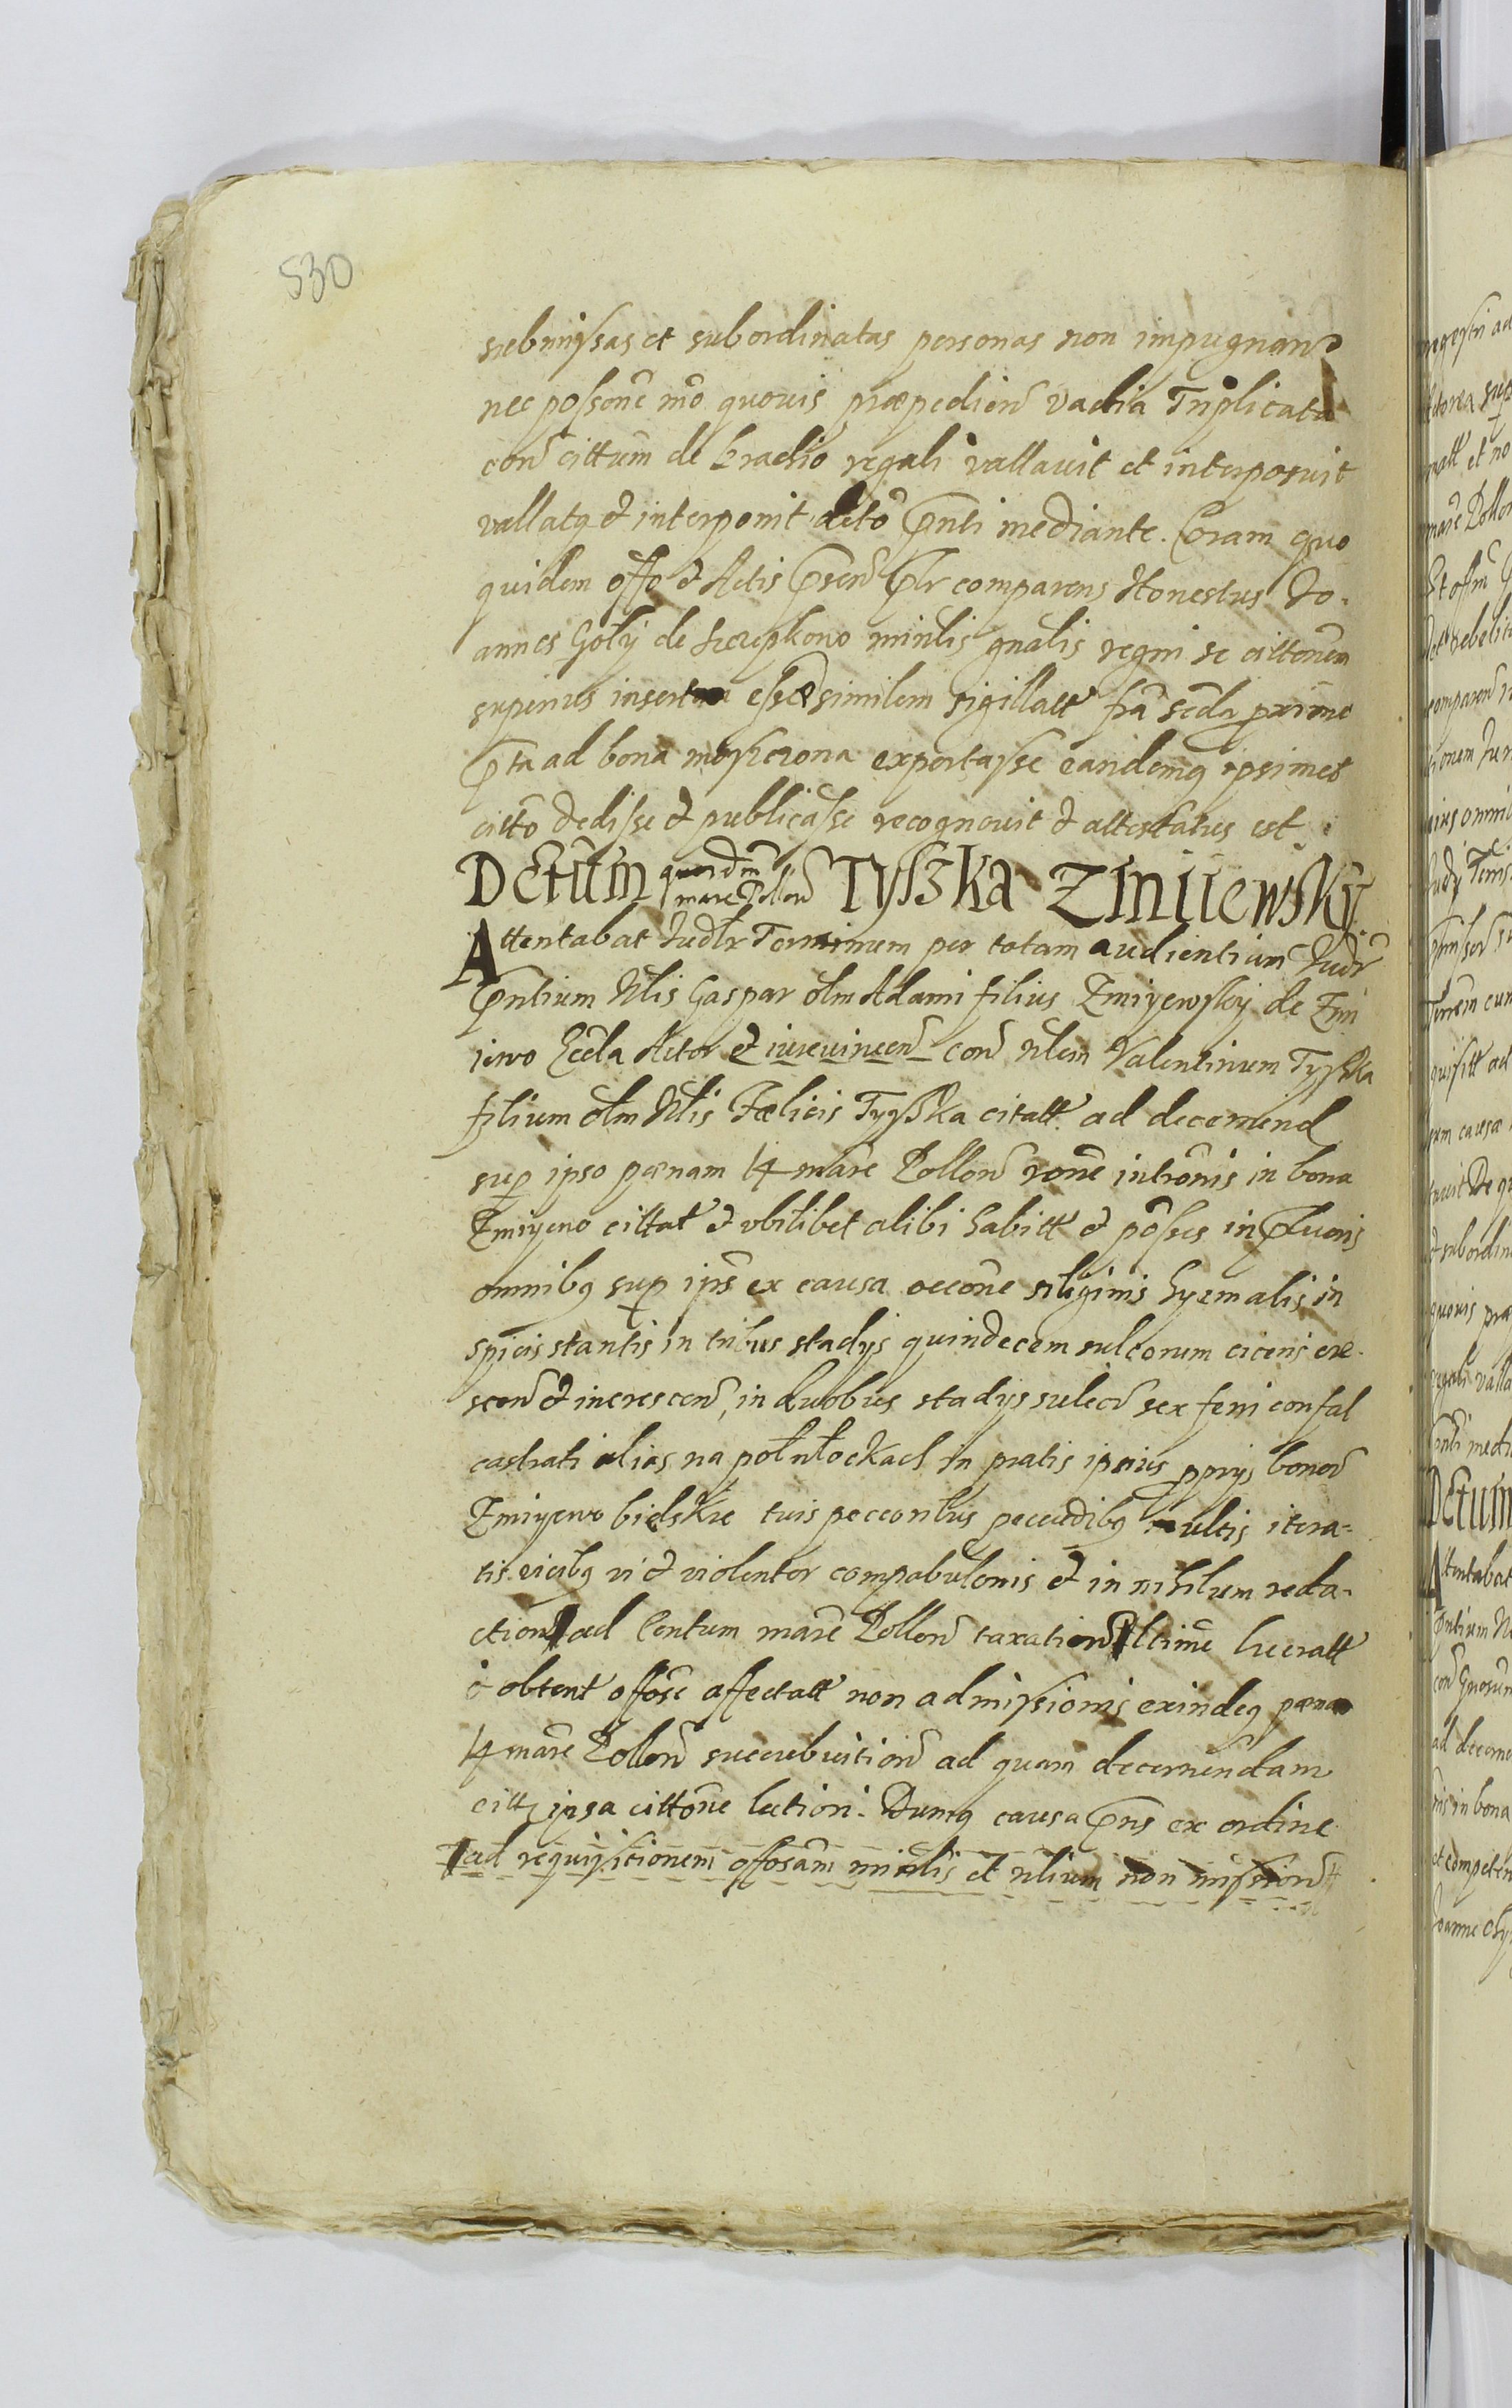 530
submissas et subordinatas personas non impugnan
nec possone mo quouis præpedien vadia Triplicata
con cittum de bracho regali vallauit et interposuit
vallatq et interponit decto Pnti mediante. Coram quo
quidem offo et Actis Psen Plr comparens Honestus Jo-
annes Goły de Szczepkowo minlis gnalis regni se cittonem
superius inserta esse similem sigillatt fra scda proxime
Pta ad bona exportasse eandemq ipsimet
citto dedisse et publicasse recognouit et attestatus est.
Detum quordm marc Pollon Tyszka Zmijewsky
Attentabat Judlr Terminum per totam audientiam Judr
Pntium Nlis Gaspar olm Adami filius Zmiyewsky de Zmi
iewo Actor et iureuincen con nlem Valentinum Tyszka
filium olm Nlis Fælicis Tyszka citatt ad decernend
sup ipso pænam 14 marc Pollon rone intromis in bona
Zmiyewo cittat et vbilibet alibi habitt et posses in Puoris
omnibq sup ipis ex causa occone siliginis hyemalis in
spicis stantis in tribus stadys quindecem sulcorum ciceris cre-
scen et increscen, in duobus stadys sulcor sex feni confal
castrati alias na połnłockach in pratis ipsius pprys bonor
Zmiyewo bielskie tuis peccoribus pecudibq multis itera-
tis vicibq vi et violenter compabulonis et in nihilum reda-
ction ad Centum marc Pollon taxation ltime lucratt
et obtent offose affectatt non admissionis exindeq pæna
14 marc Pollon succubuition ad quam decernendam
citt ipsa cittone lation. Dumq causa Pns ex ordine
ad requisitionem offosam minlis et nlium non mission